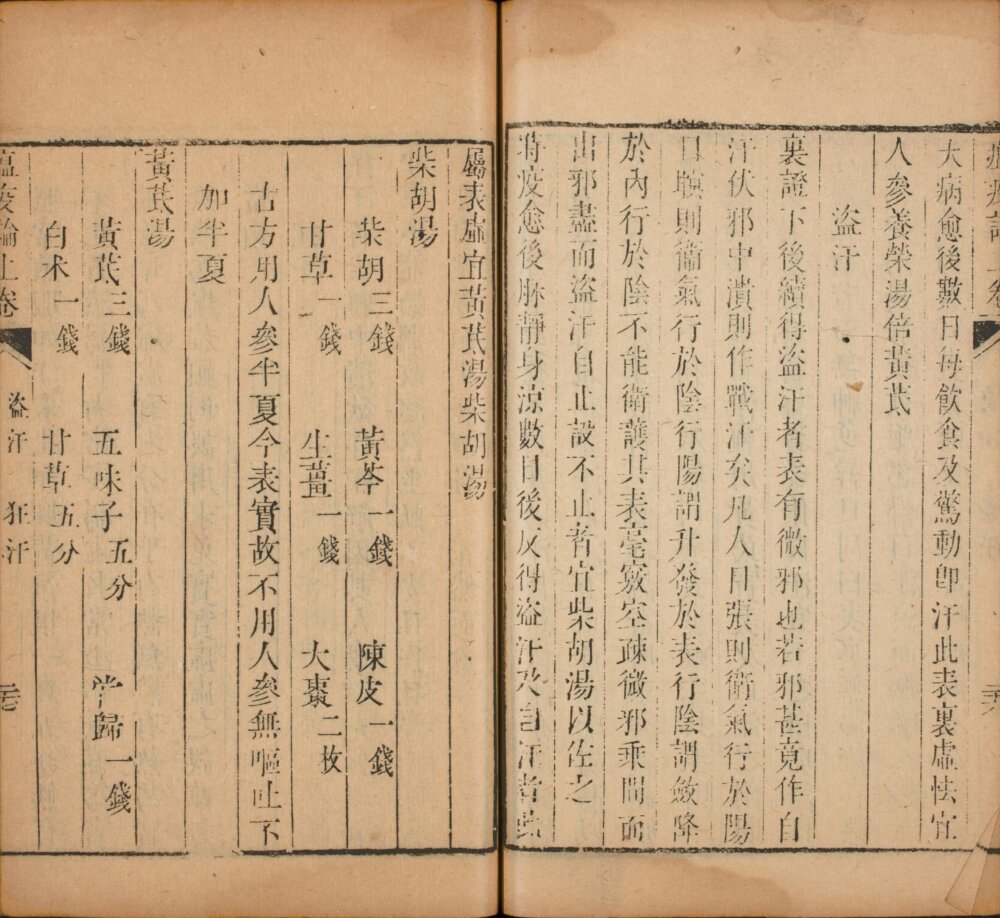 大病愈後數日每飲食及驚動卽汗此表裏虛怯宜
人參養榮湯倍黃芪
盜汗
裏證下後續得盜汗者表有微邪也若邪甚竟作自
汗伏邪中潰則作戰汗矣凡人目張則衛氣行於陽
目瞑則衛氣行於陰行陽謂升發於表行陰謂斂降
於內行於陰不能衛護其表毫竅空疎微邪乘間而
出邪盡而盜汗自止設不止者宜柴胡湯以佐之
時疫愈後脉靜身凉數日後反得盜汗及自汗者
屬表虛宜黃芪湯柴胡湯
柴胡湯
柴胡三錢 黃芩一錢 陳皮一錢
甘草一錢 生薑一錢 大棗二枚
古方用人參半夏今表實故不用人參無嘔吐不
加半夏
黃芪湯
黃芪三錢 五味子五分 當歸一錢
白朮一錢 甘草五分
瘟疫論上卷 盜汗 狂汗